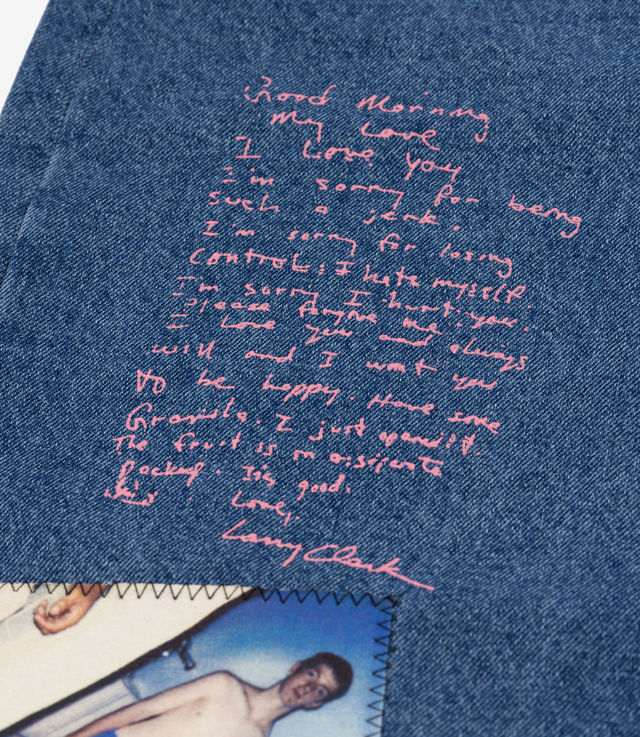 Good Morning
My Love
I Love you
I'm sorry for being
such a jerk.
I'm sorry for losing
control. I hate myself.
I'm sorry I hurt you.
Please forgive me
I love you and always
will and I want you
to be happy. Have some
Granola. I just opened it.
The fruit is in a separate
Packet. It's good.
Love,
Larry Clark